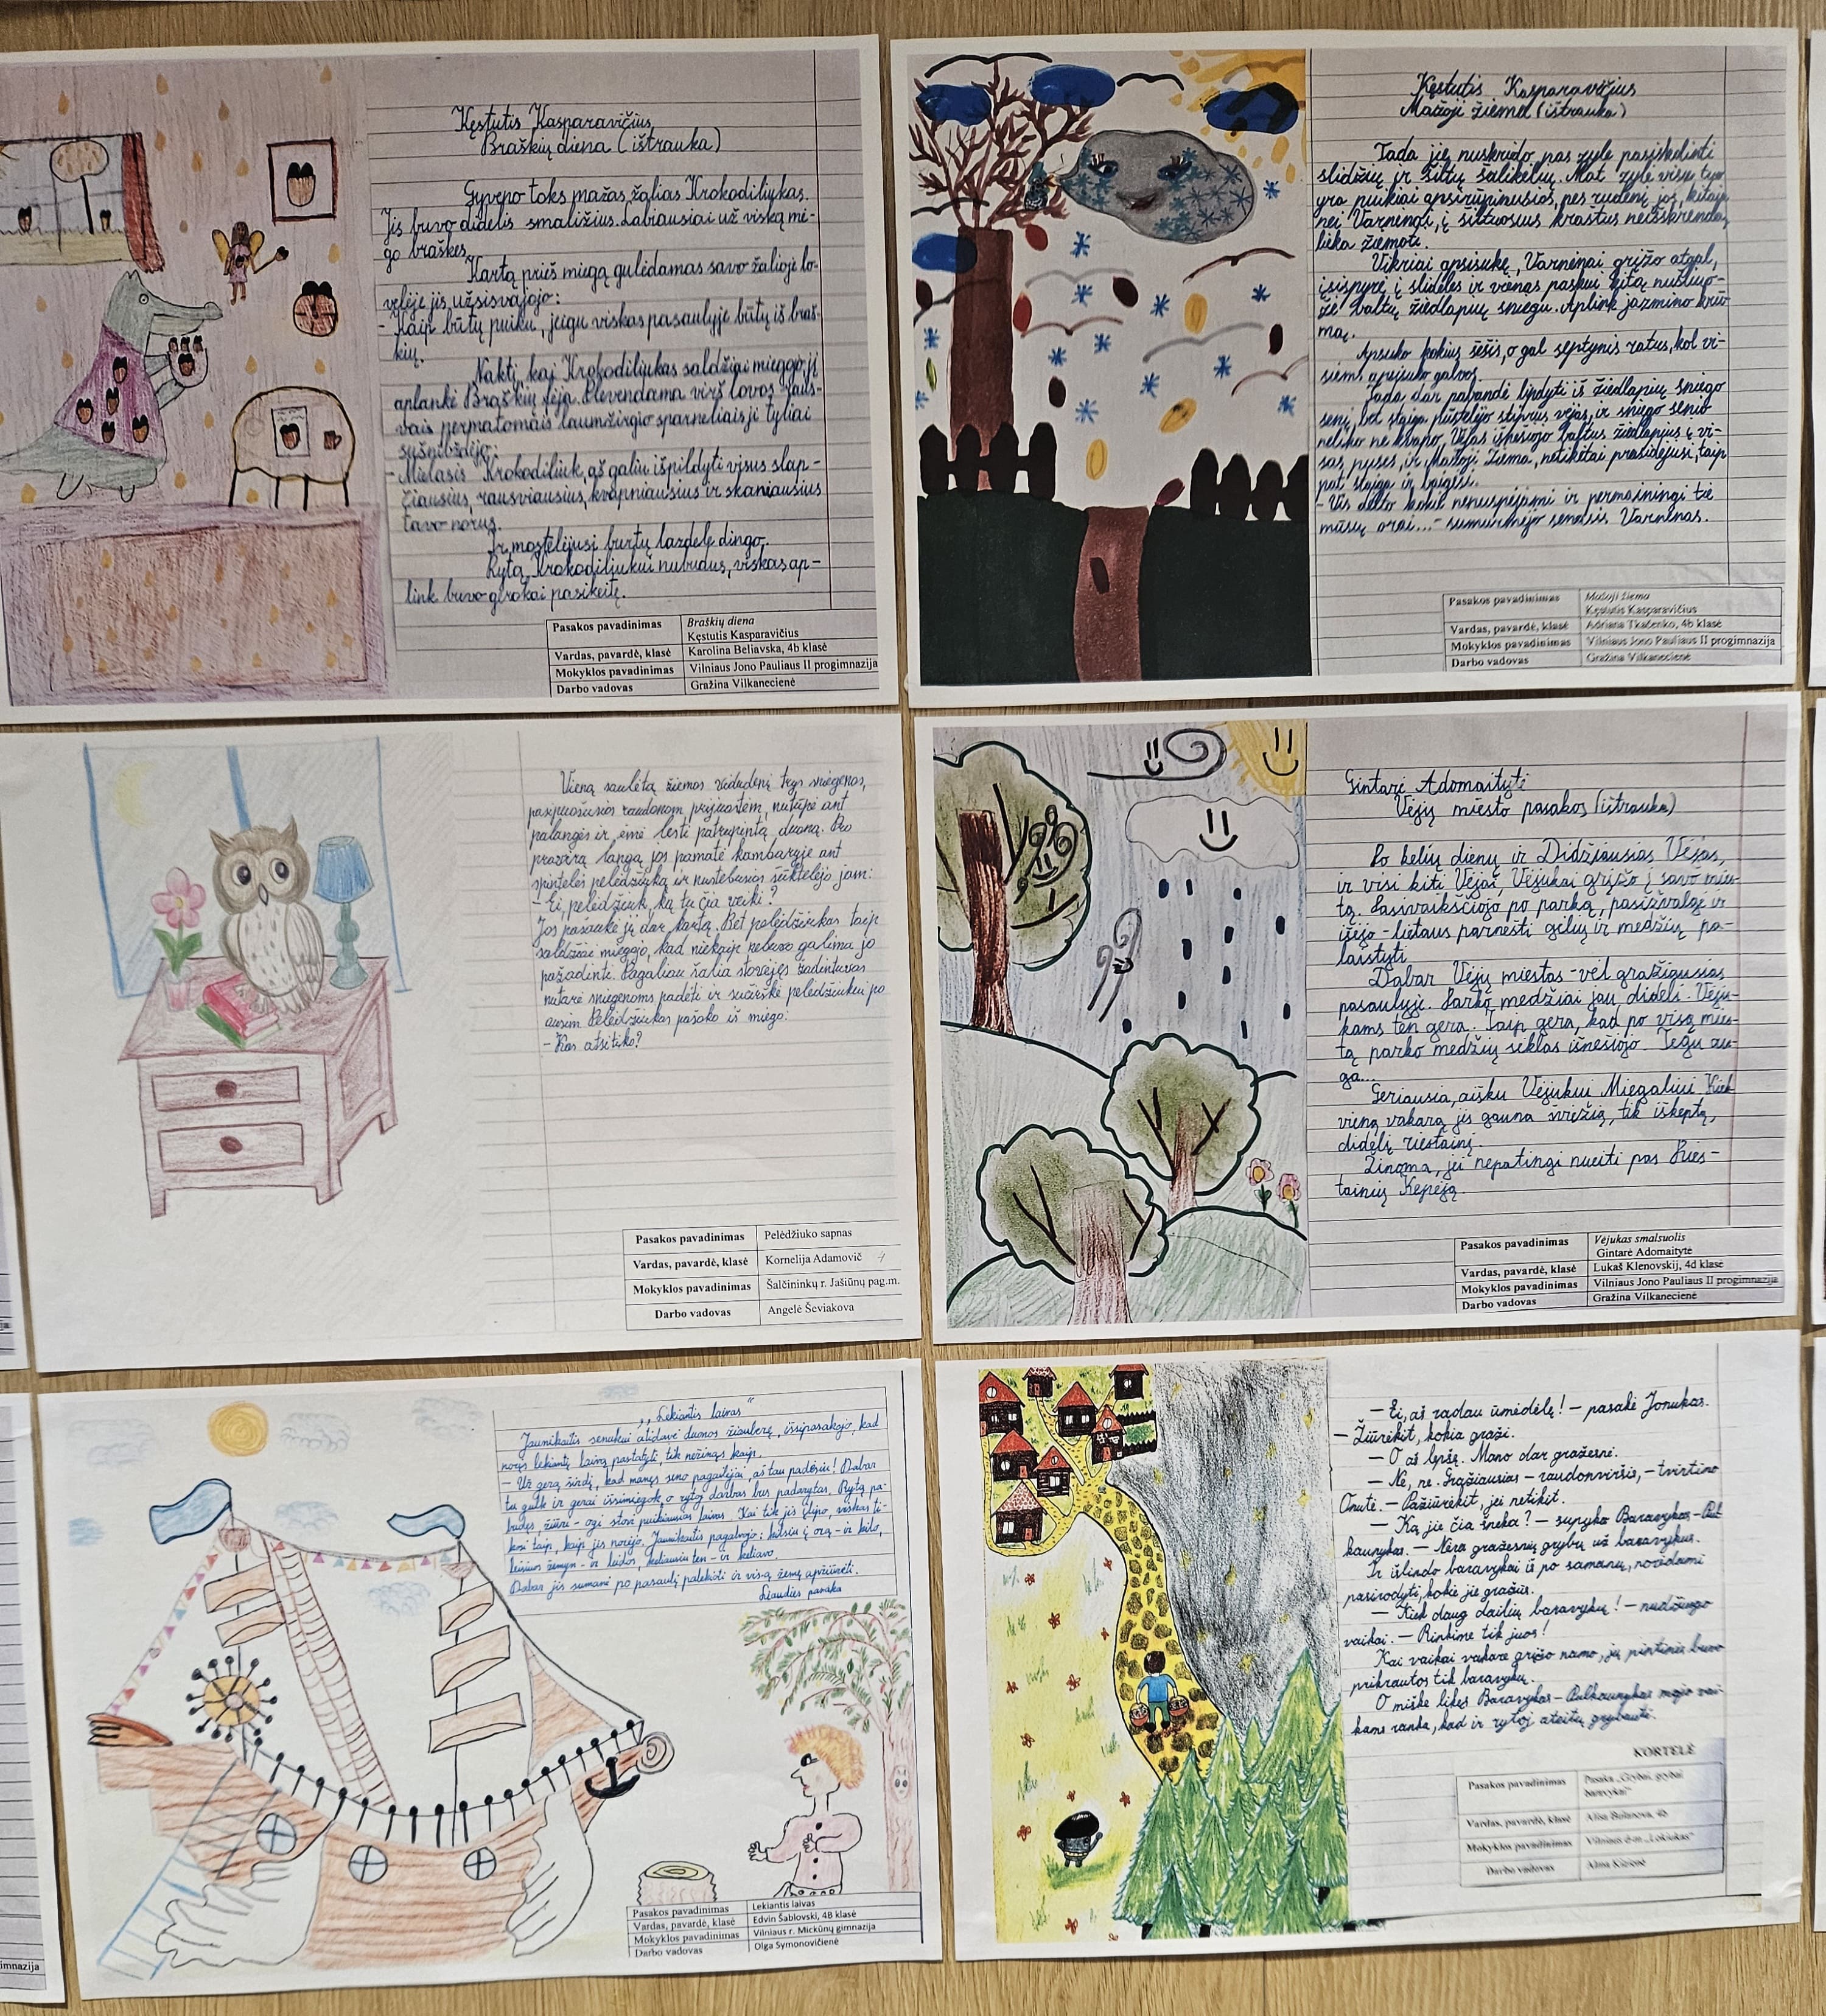 Kęstutis Kasparavičius
Braškių diena (ištrauka)
Gyveno toks mažas, žalias Krokodiliukas.
Jis buvo didelis smaližius. Labiausiai už viską mė-
go braškes.
Kartą prieš miegą gulėdamas savo žalioje lo-
velėje jis užsisvajojo:
- Kaip būtų puiku, jeigu viskas pasaulyje būtų iš braš-
kių.
Naktį, kai Krokodiliukas saldžiai miegojo, jį
aplankė Braškių Fėja. Plevendama virš lovos gaus-
vais permatomais laumžirgio sparneliais ji tyliai
sušnibždėjo:
- Mielasis Krokodiliuk, aš galiu išpildyti visus slap-
čiausius, rausviausius, kvapniausius ir skaniausius
tavo norus.
Ir mostelėjusi burtų lazdele dingo.
Rytą, Krokodiliukui nubudus, viskas ap-
link buvo gerokai pasikeitę.
Pasakos pavadinimas Braškių diena
Kęstutis Kasparavičius
Vardas, pavardė, klasė Karolina Beliavska, 4b klasė
Mokyklos pavadinimas Vilniaus Jono Pauliaus II progimnazija
Darbo vadovas Gražina Vilkanecienė
Kęstutis Kasparavičius
Mažoji žiema (ištrauka)
Tada jie nuskrido pas zylę pasiskolinti
slidžių ir šiltų šalikėlių. Mat zylė visu tuo
yra puikiai apsirūpinusios, nes rudenį jos, kitaip
nei Varnėnai, į šiltuosius kraštus neišskrenda,
lieka žiemoti.
Vikriai apsisukę, Varnėnai grįžo atgal,
įsispyrė į slideles ir vienas paskui kitą nušliuo-
žė baltų žiedlapių sniegu. Aplink jazmino krū-
mą.
Apsuko kokius šešis, o gal septynis ratus, kol vi-
siems apsisuko galvos.
Tada dar pabandė lipdyti iš žiedlapių sniego
senį, bet staiga pūstelėjo stiprus vėjas, ir sniego senio
neliko ne kvapo. Vėjas išnešiojo baltus žiedlapius į vi-
sas puses, ir Mažoji Žiema, netikėtai prasidėjusi, taip
pat staiga ir baigėsi.
- Vis dėlto kokie nenuspėjami ir permainingi tie
mūsų orai...- sumurmėjo senasis Varnėnas.
Pasakos pavadinimas Mažoji žiema
Kęstutis Kasparavičius
Vardas, pavardė, klasė Adriana Tkačenko, 4b klasė
Mokyklos pavadinimas Vilniaus Jono Pauliaus II progimnazija
Darbo vadovas Gražina Vilkanecienė
Vieną saulėtą žiemos vidudienį trys sniegenos,
pasipuošusios raudonom prijuostėm, nutūpė ant
palangės ir ėmė lesti patrupintą duoną. Pro
pravirą langą jos pamatė kambaryje ant
spintelės pelėdžiuką ir nustebusios šūktelėjo jam:
- Ei, pelėdžiuk, ką tu čia veiki?
Jos pašaukė jį dar kartą. Bet pelėdžiukas taip
saldžiai miegojo, kad niekaip nebuvo galima jo
pažadinti. Pagaliau šalia stovėjęs žadintuvas
nutarė sniegenoms padėti ir sučirškė pelėdžiukui po
ausim. Pelėdžiukas pašoko iš miego:
- Kas atsitiko?
Pasakos pavadinimas Pelėdžiuko sapnas
Vardas, pavardė, klasė Kornelija Adamovič 4
Mokyklos pavadinimas Šalčininkų r. Jašiūnų pag.m.
Darbo vadovas Angelė Ševiakova
Gintarė Adomaitytė
Vėjų miesto pasakos (ištrauka)
Po kelių dienų ir Didžiausias Vėjas,
ir visi kiti Vėjai, Vėjukai grįžo į savo mies-
tą. Pasivaikščiojo po parką, pasižvalgė ir
išėjo - lietaus parnešti gėlių ir medžių pa-
laistyti.
Dabar Vėjų miestas - vėl gražiausias
pasaulyje. Parko medžiai jau dideli. Vėju-
kams ten gera. Taip gera, kad po visą mies-
tą parko medžių sėklas išnešiojo. Tegu au-
ga...
Geriausia, aišku Vėjukui Miegaliui. Kiek
vieną vakarą jis gauna šviežią, tik iškeptą,
didelį riestainį.
Žinoma, jei nepatingi nueiti pas Ries-
tainių Kepėją.
Pasakos pavadinimas Vėjukas smalsuolis
Gintarė Adomaitytė
Vardas, pavardė, klasė Lukaš Klenovskij, 4d klasė
Mokyklos pavadinimas Vilniaus Jono Pauliaus II progimnazija
Darbo vadovas Gražina Vilkanecienė
„Lekiantis laivas"
Jaunikaitis senukui atidavė duonos žiauberę, išsipasakojo, kad
norįs lekiantį laivą pastatyti tik nežinąs kaip.
- Už gerą širdį, kad manęs seno pagailėjai, aš tau padėsiu! Dabar
tu gulk ir gerai išsimiegok, o rytoj darbas bus padarytas. Rytą pa-
budęs, žiūri - ogi stovi puikiausias laivas. Kai tik jis įlipo, viskas ti-
kosi taip, kaip jis norėjo. Jaunikaitis pagalvojo: kilsiu į orą - ir kilo,
leisiuos žemyn - ir leidos, keliausiu ten - ir keliavo.
Dabar jis sumanė po pasaulį palekioti ir visą žemę apžiūrėti.
Liaudies pasaka
Pasakos pavadinimas Lekiantis laivas
Vardas, pavardė, klasė Edvin Šablovski, 4B klasė
Mokyklos pavadinimas Vilniaus r. Mickūnų gimnazija
Darbo vadovas Olga Symonovičienė
— Ei, aš radau ūmėdėlę! — pasakė Jonukas.
— Žiūrėkit, kokia graži.
— O aš lepšę. Mano dar gražesnė.
— Ne, ne. Gražiausias — raudonviršis, — tvirtino
Onutė. — Pažiūrėkit, jei netikit.
— Ką jie čia šneka? — supyko Baravykas — Pul
kauninkas. — Nėra gražesnių grybų už baravykus.
Ir išlindo baravykai iš po samanų, norėdami
pasirodyti, kokie jie gražūs.
— Kiek daug dailių baravykų! — nudžiugo
vaikai. — Rinkime tik juos!
Kai vaikai vakare grįžo namo, jų pintinės buvo
prikrautos tik baravykų.
O miške likęs Baravykas — Pulkauninkas mojo vai-
kams ranka, kad ir rytoj ateitų grybauti.
KORTELĖ
Pasakos pavadinimas Pasaka „Grybai, grybai
baravykai"
Vardas, pavardė, klasė Alisa 4b
Mokyklos pavadinimas Vilniaus d-m „Lokiukas"
Darbo vadovas Alma